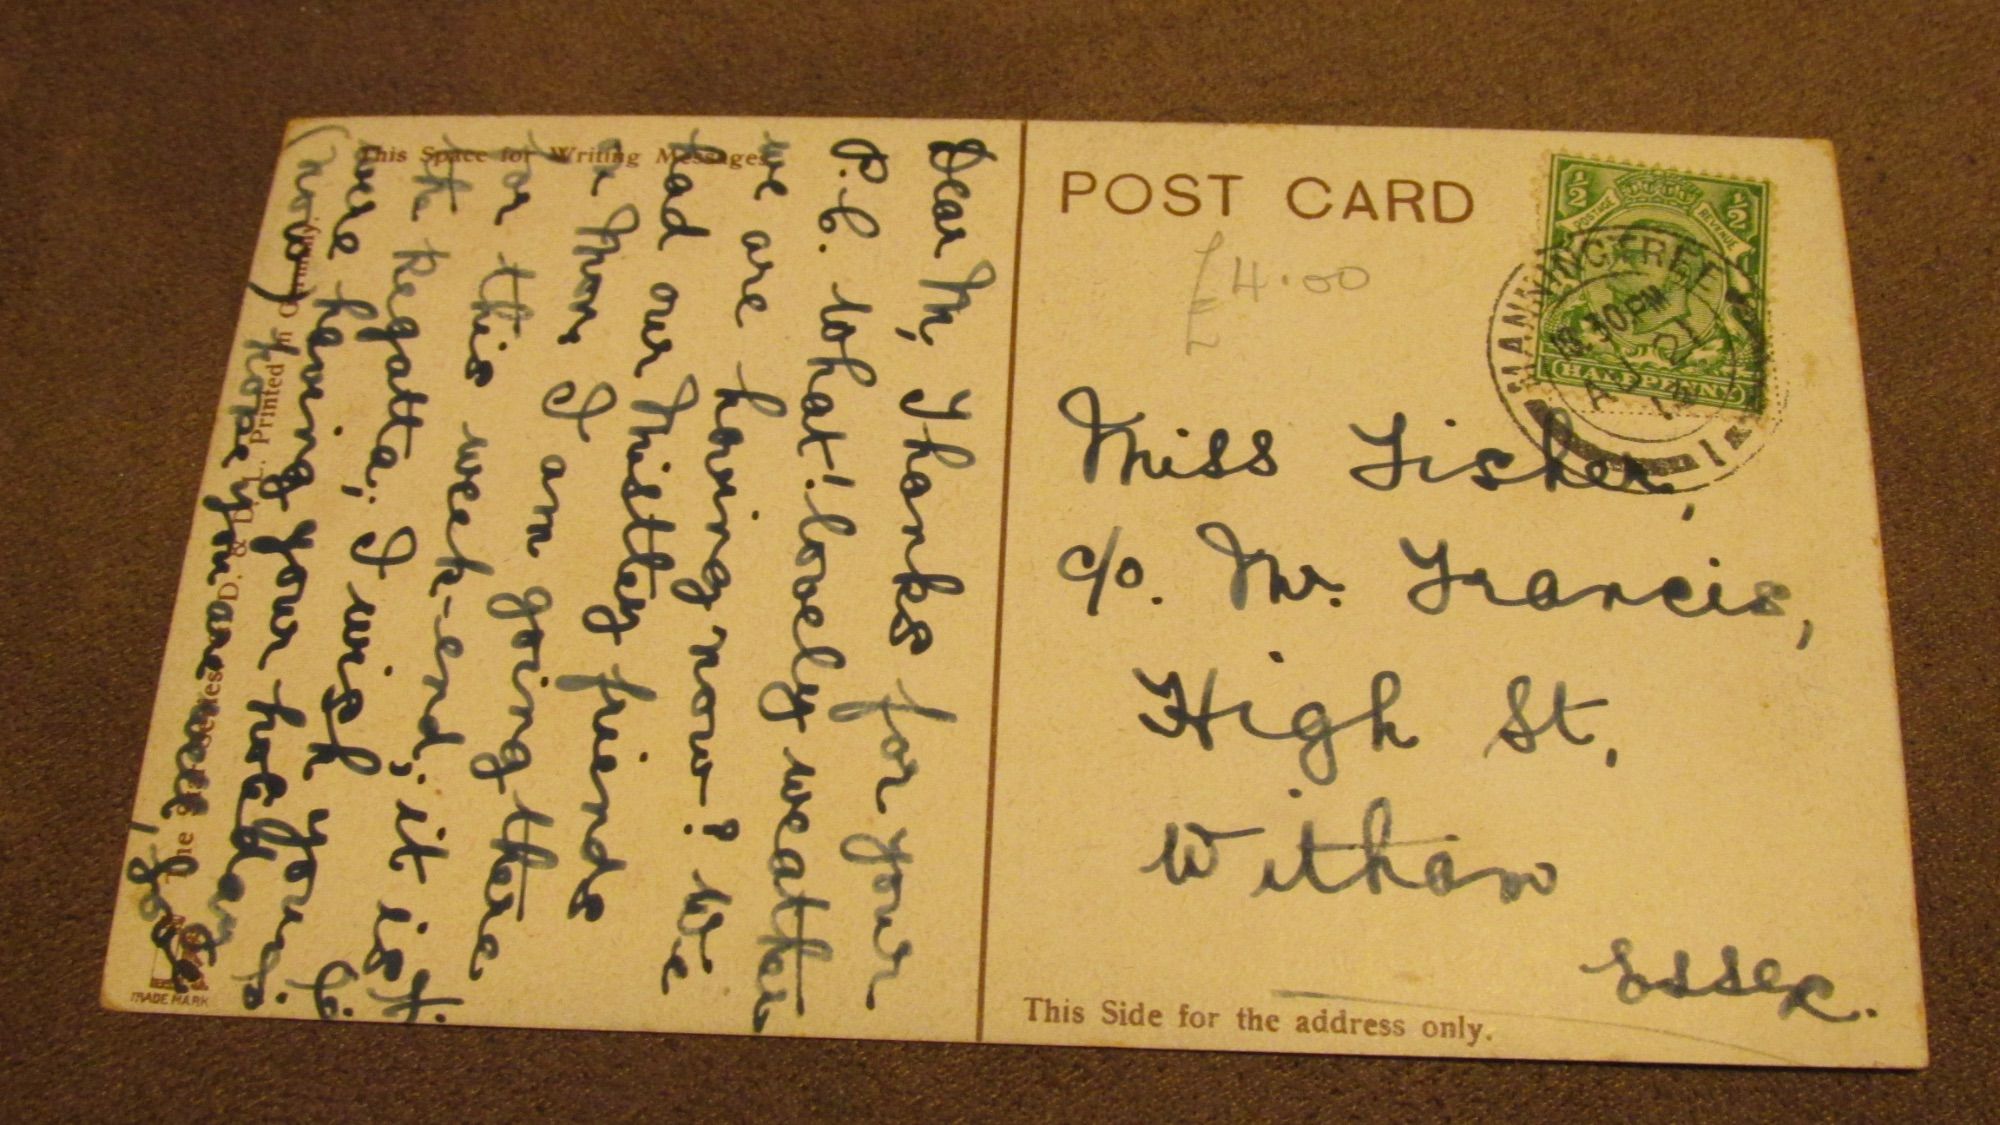 This Space for Writing Messages
Dear M, Thanks for your
P.C. What! lovely weather
we are having now? We
had our Mistley friends
on Mon I am going there
for this week-end; it is
the Regatta; I wish you
were having your holidays
now)
hope you are nice, Love
The Series D. & D. Printed in Germany.
TRADE MARK
POST CARD
£4.00
½ ½
POSTAGE REVENUE
HALFPENNY
MANNINGTREE
.30PM
Miss Fisher,
c/o. Mr. Francis,
High St,
Witham
Essex.
This Side for the address only.